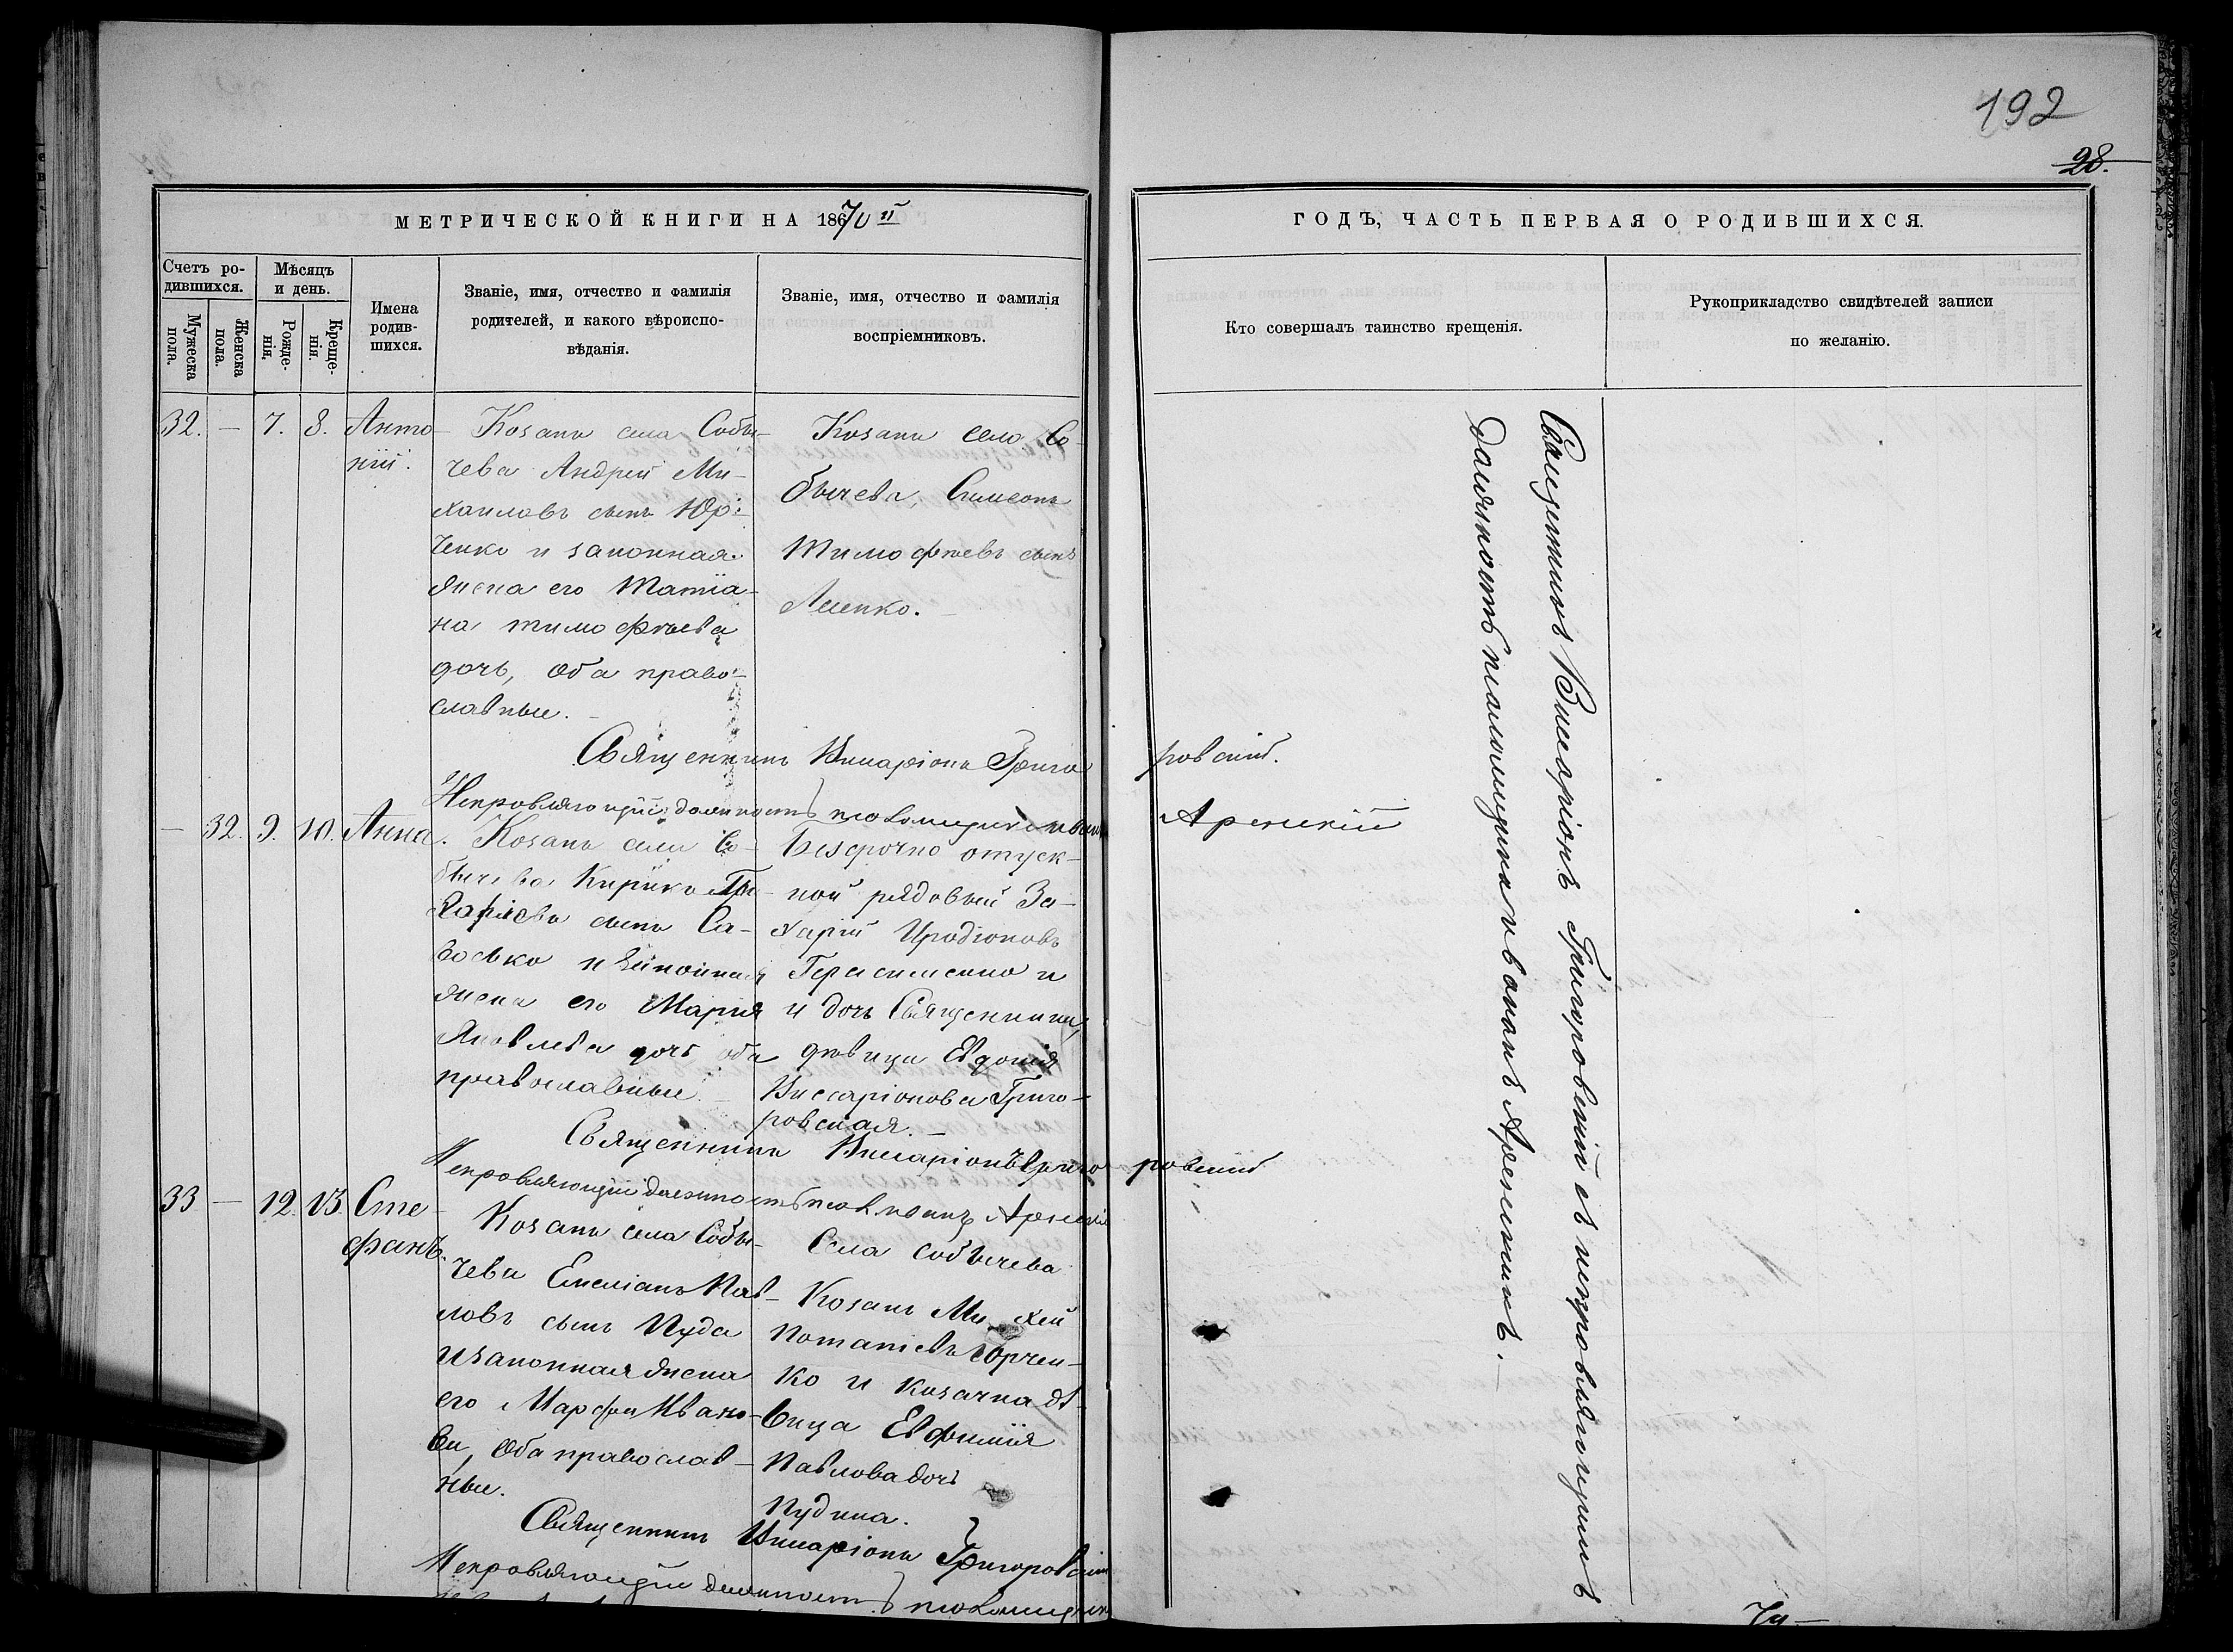 192
28.
МЕТРИЧЕСКОЙ КНИГИ НА 18670й
ГОДЪ, ЧАСТЬ ПЕРВАЯ О РОДИВШИХСЯ.
Счетъ ро-
дившихся.
Мужеска
пола.
Женска
пола.
Мѣсяцъ
и день.
Рожде-
нія.
Креще-
нія.
Имена
родив-
шихся.
Званіе, имя, отчество и фамилія
родителей, и какого вѣроиспо-
вѣданія.
Званіе, имя, отчество и фамилія
воспріемниковъ.
Кто совершалъ таинство крещенія.
Рукоприкладство свидѣтелей записи
по желанію.
32. — 7. 8. Анто-
ній.
Козакъ села Собы-
чева Андрей Ми-
хаиловъ сынъ Юр-
ченко и законная
жена его Татіа-
на тимофѣева
дочь, Оба право-
славные.
Козакъ село Со-
бычева, Симеонъ
Тимофѣевъ сынъ
Ляшенко.
Священникъ Виссаріонъ Григоровскій.
Исправляющій должность псаломщика Арженскій
— 32. 9. 10. Анна.
Козакъ села Со-
бычева Кирикъ
сынъ Са-
восько и законная
жена его Марія
Яковлева дочь оба
православные.
Безсрочно отуск-
ной рядовый За-
харій Иродіоновъ
Герасименко и
и дочь Священника,
дѣвица Евдокія
Виссаріонова Григо-
ровская.
Священникъ Виссаріонъ Григоровскій
Исправляющій должность Арженскій
33 — 12. 13. Сте-
фанъ.
Козакъ села Собы-
чева Емеліанъ Пав-
ловъ сынъ Пуда
и законная жена
его Марфа Ивано-
ва, Оба православ-
ные.
Села Собычева
Козакъ Михей
Потапіевъ Юрчен-
ко и козачка дѣ-
вица Евфимія
Павлова дочь
Пудина.
Священникъ Виссаріонъ Григоровскій
Исправляющій должность псаломщика
Священникъ Виссаріонъ Григоровскій съ исправляющимъ
должность псаломщика Арженскимъ.